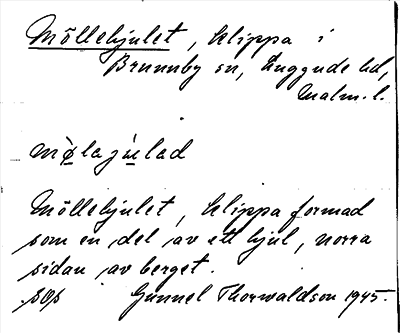 Möllehjulet, klippa i
Brunnby sn, Luggude hd,
Malm. l.
mø̀lajùlad
Möllehjulet, klippa formad
som en del av ett hjul, norra
sidan av berget.
Gunnel Thorwaldson 1945.